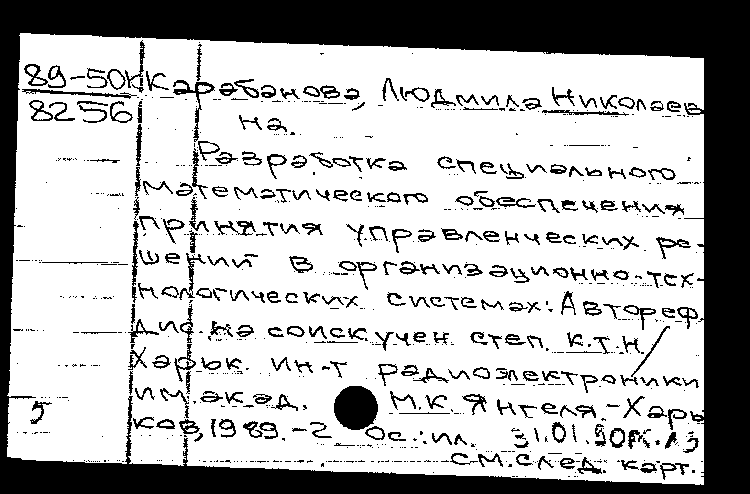 89-50К Карабанова, Людмила Николаев
8256 на.
Разработка специального
математического обеспечения
принятия управленческих ре-
шений в организационно-тех-
нологических системах: Автореф.
дис. на соиск. учен. степ. к.т.н. /
Харьк. ин-т радиоэлектроники
им. акад. М.К. Янгеля. - Харь
5 ков, 1989. - 2 0с.: ил. 31.01.90
см. след. карт.